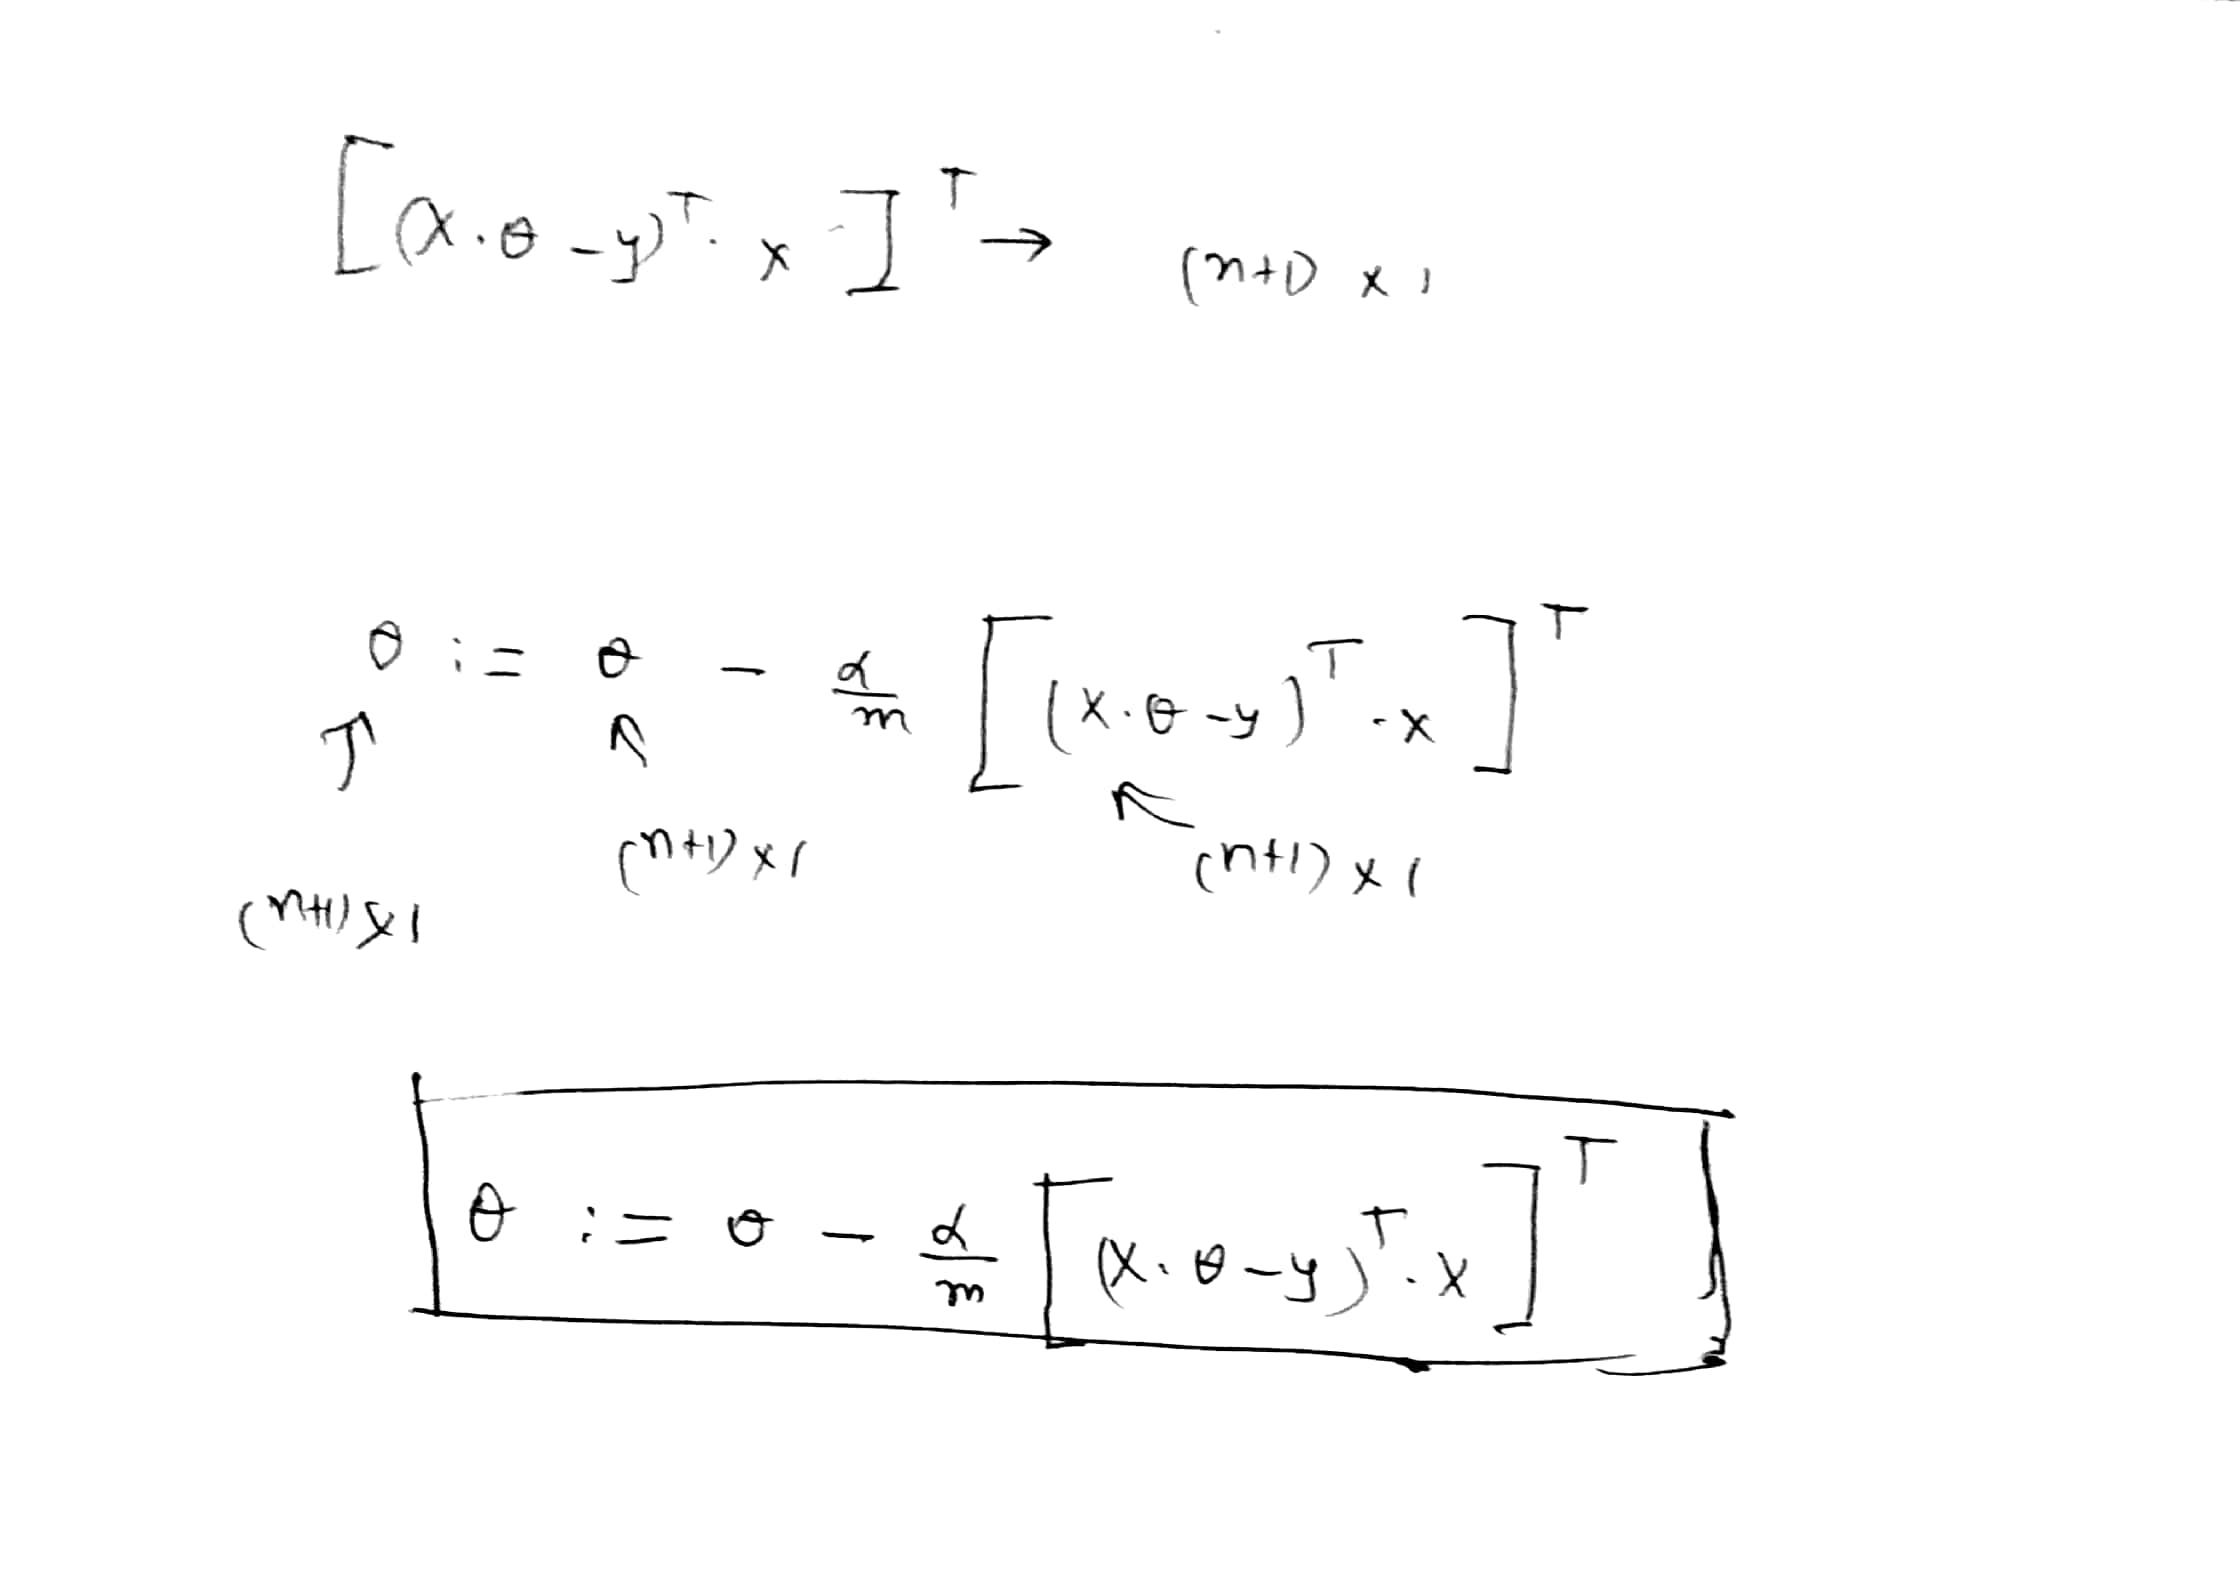 [(X.θ - y)ᵀ. x]ᵀ → (n+1) x 1
θ := θ - α/m [(X.θ - y)ᵀ . x]ᵀ
(n+1) x 1 (n+1) x 1
(n+1) x 1
θ := θ - α/m [(X.θ - y)ᵀ. X]ᵀ